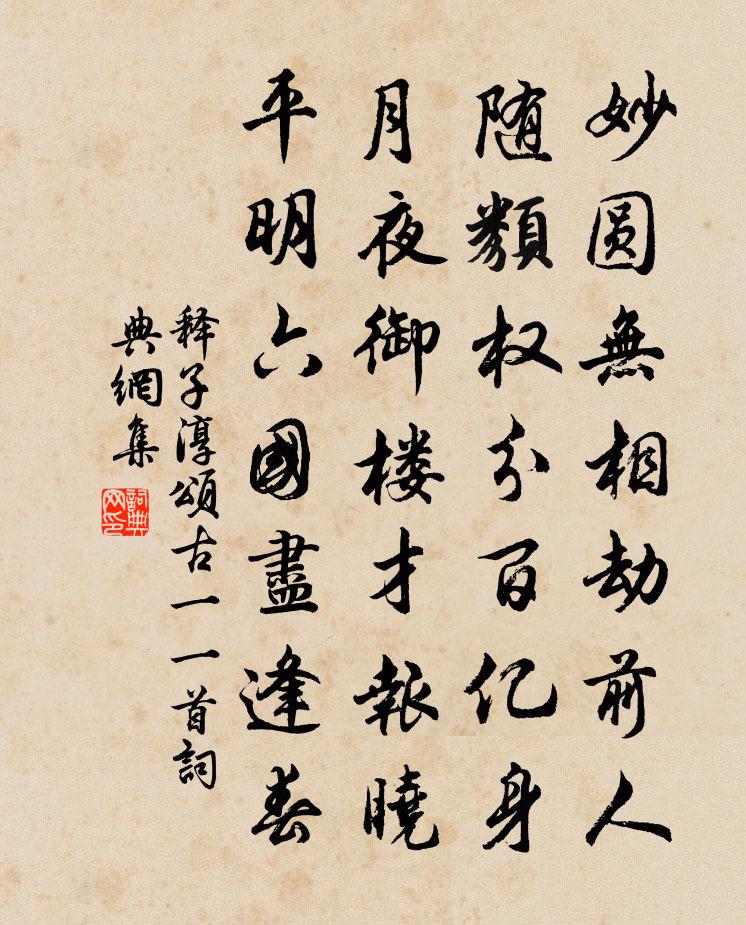 妙圆無相劫前人
随類权分百亿身
月夜御楼才報曉
平明六國盡逢春
释子淳頌古一一首詞
典網集
詞典
网印